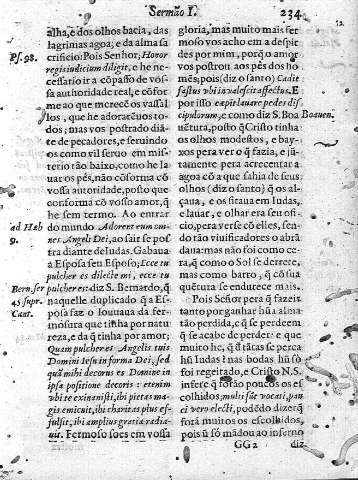 Sermão I.
234
alha, e dos olhos bacia, das
lagrimas agoa; e da alma sa
crificio: Pois Senhor; Honor
regis iudicium diligit, e he ne
cessario ir a cõpasso de vos-
sa authoridade real, e cõfor
me ao que mereçẽ os vassal
los, que he adorarẽuos to-
dos; mas vos postrado diã-
te de pecadores, e seruindo
os como vil seruo em mis-
terio tão baixo, como he la
uar os pés, não cõforma cõ
vossa autoridade, posto que
conforma cõ vosso amor, q̃
he sem termo. Ao entrar
do mundo Adorent eum om-
nes Angeli Dei, ao sair se pos
tra diante de Iudas. Gabaua
a Esposa seu Esposo; Ecce tu
pulcher es dilecte mi, ecce tu
pulcher es: diz S. Bernardo, q̃
naquelle duplicado q̃ a Es-
posa faz o louuaua da fer-
mosura que tinha por natu
reza, e da q̃ tinha por amor;
Quam pulcher es Angelis tuis
Domini Iesu in forma Dei, sed
quã mihi decorus es Domine in
ipsa positione decoris: etenim
vbi te exinanisti, ibi pietas ma
gis emicuit, ibi charitas plus ef-
fulsit, ibi amplius gratia radia-
uit. Fermoso sóes em vossa
Ps. 98.
ad Heb
9.
Bern. ser
45 supr.
Cant.
gloria, mas muito mais fer
moso vos acho em a despir
des por mim, porq̃ o amor
vos postrou aos pés dos ho
mẽs; pois (diz o santo) Cadit
fastus vbi inualescit affectus. E
por isso cæpit lauare pedes dis
cipulorum, e como diz S. Boa
uẽtura, posto q̃ Cristo tinha
os olhos modestos, e bay-
xos pera ver o q̃ fazia, e jũ-
tamente pera acrecentar a
agoa cõ a que sahia de seus
olhos (diz o santo) q̃ os al-
çaua, e os fitaua em Iudas,
e lauar, e olhar era seu ofi-
cio, pera ver se cõ elles, sen-
do tão viuificadores o abrã
daua: mas não foi como ce-
ra, q̃ como o Sol se derrete,
mas como barro, q̃ cõ sua
quẽtura se endurece mais.
Pois Señor pera q̃ fazeis
tanto por ganhar hũa alma
tão perdida, e q̃ se perdeem
q̃ se acabe de perder: e que
muito he, q̃ dẽtacas se perca
hũ Iudas? nas bodas hũ só
foi regeitado, e Cristo N.S.
infere q̃ forão poucos os es
colhidos; multi sũt vocati, pau
ci vero electi, podẽdo dizer q̃
forã muitos os escolhidos,
pois ũ só mãdou ao inferno
Bouuen.
GG2
diz